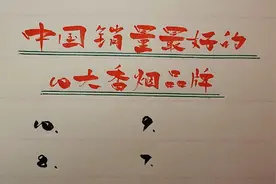 中国销量最好的
10大香烟品牌
10. 9.
8. 7.